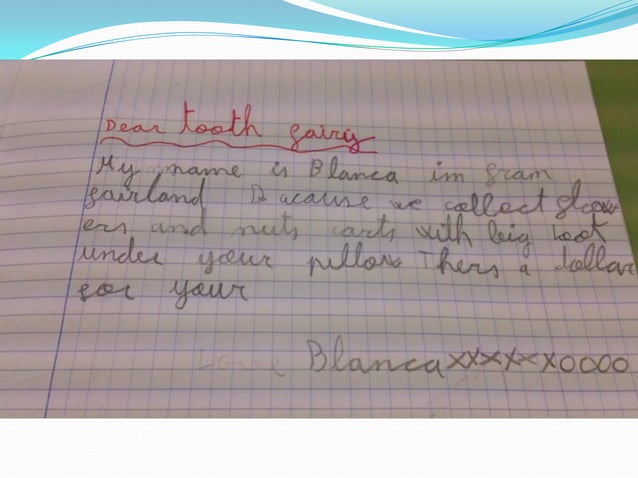 Dear tooth fairy
My name is Blanca im fram
fairland Bacause we collect flow
ers and nuts carts with big loot
under your pillow Thers a dollar
for your
Love Blanca xxxxx0000